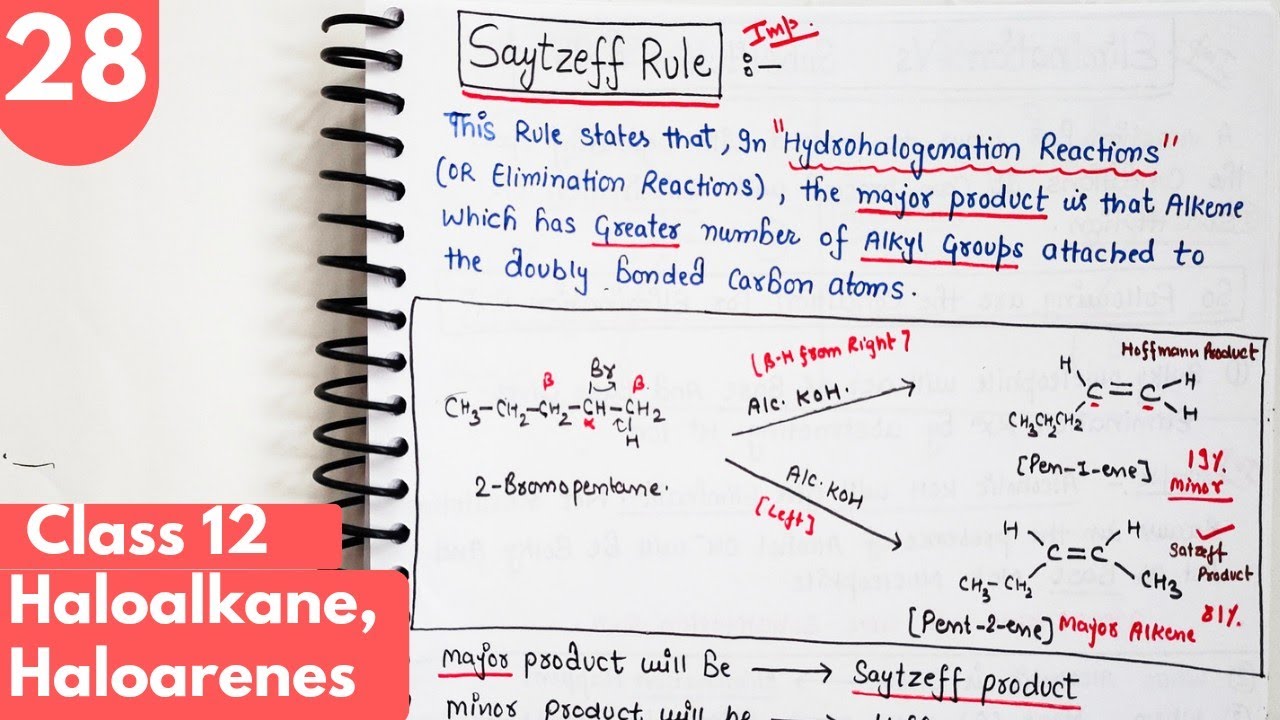 28
Saytzeff Rule :-
Imp.
This Rule states that, In "Hydrohalogenation Reactions"
(OR Elimination Reactions), the major product is that Alkene
which has Greater number of Alkyl Groups attached to
the doubly bonded carbon atoms.
[β-H from Right]
Hoffmann Product
Br
β β
CH3-CH2-CH2-CH-CH2
α
H
2-Bromopentane.
Alc. KOH.
H
C=C
H
H
CH3CH2CH2
[Pen-1-ene]
19%
minor
Alc. KOH
[Left]
H H
C=C
CH3-CH2
CH3
Satzeff
Product
[Pent-2-ene] Major Alkene 81%
Major product will Be → Saytzeff product
minor product will be →
Class 12
Haloalkane,
Haloarenes